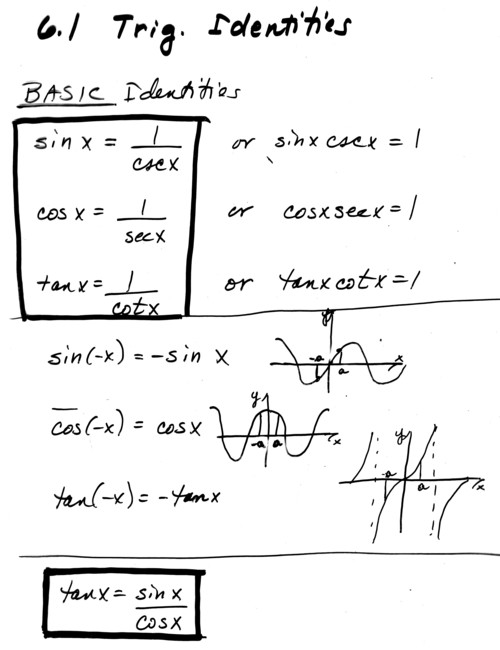 6.1 Trig. Identities
BASIC Identities
sin x = 1/csc x or sin x csc x = 1
cos x = 1/sec x or cos x sec x = 1
tan x = 1/cot x or tan x cot x = 1
sin(-x) = -sin x
y
-a a x
cos(-x) = cos x
y
-a a x
tan(-x) = -tan x
y
-a a x
tan x = sin x/cos x